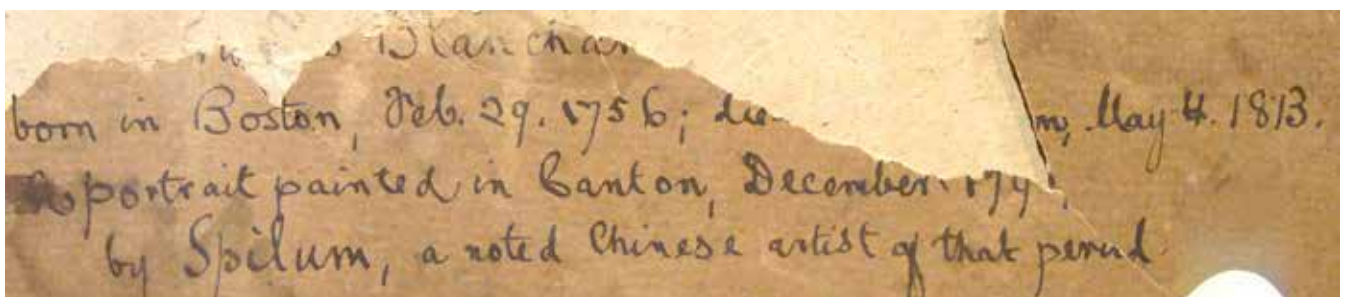 Blanchar
born in Boston, Feb. 29. 1756; die m, May 4. 1813.
portrait painted in Canton, December. 179
by Spilum, a noted Chinese artist of that period